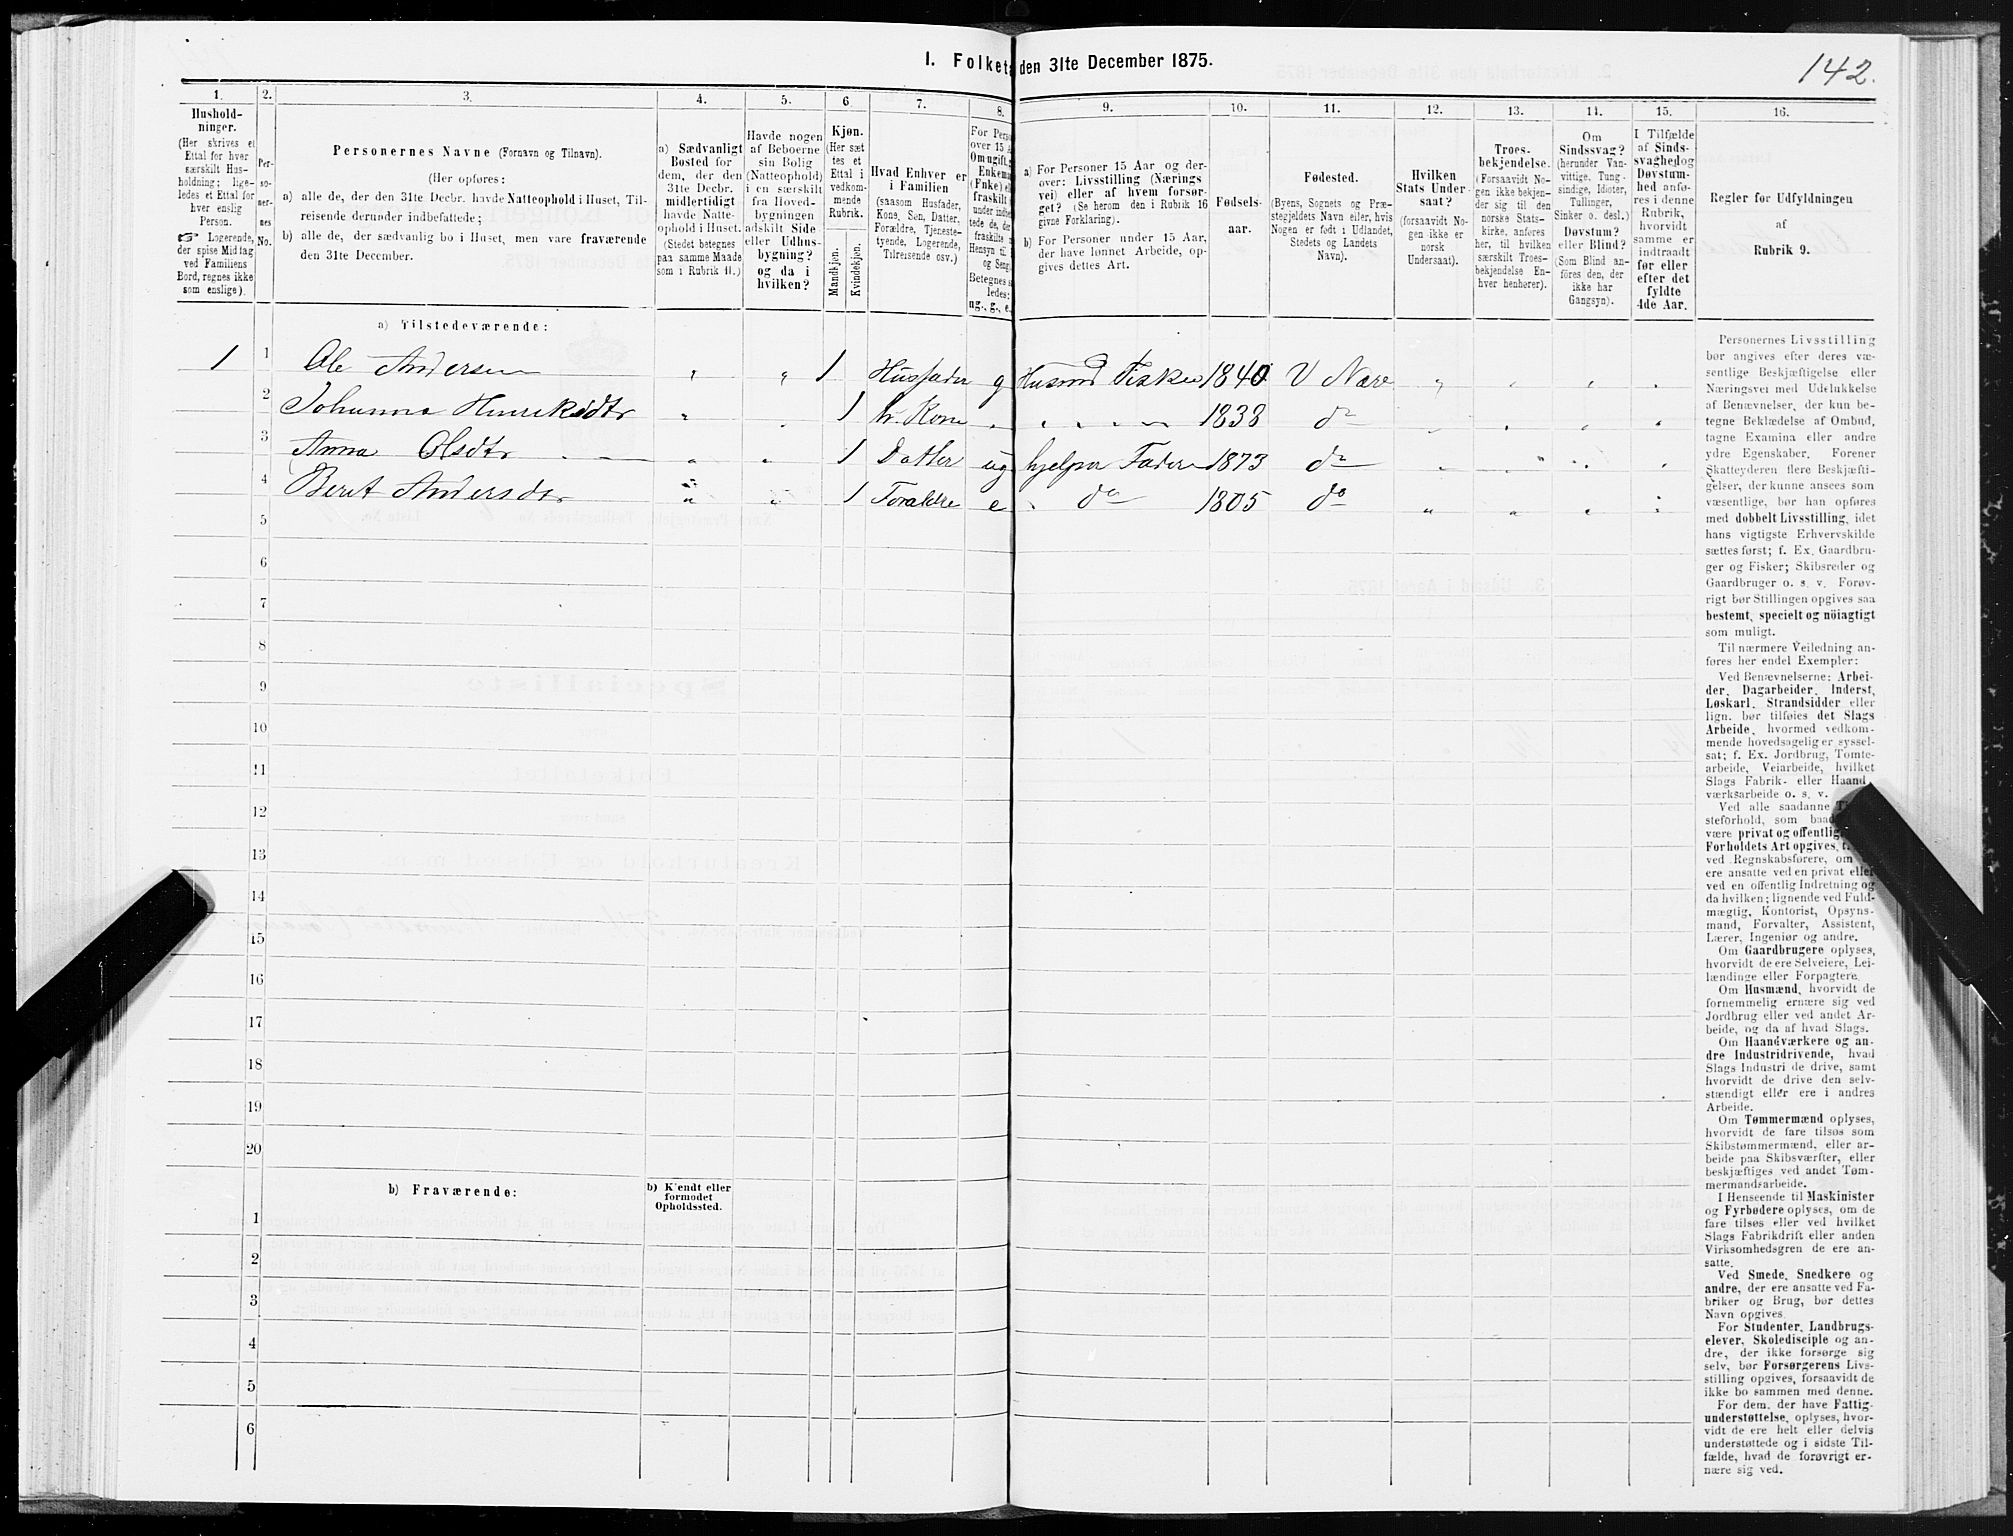 I. Folket den 31te December 1875.
142.
1. 2. 3. 4. 5. 6. 7. 8. 9. 10. 11. 12. 13. 14. 15. 16.
Hushold-
ninger.
(Her skrives et
Ettal for hver
særskilt Hus-
holdning; lige-
ledes et Ettal for
hver enslig
Person.
☞ Logerende,
der spise Middag
ved Familiens
Bord, regnes ikke
som enslige).
Per-
so-
ner-
nes
No.
Personernes Navne (Fornavn og Tilnavn).
(Her opføres:
a) alle de, der den 31te Decbr. havde Natteophold i Huset, Til-
reisende derunder indbefattede;
b) alle de, der sædvanlig bo i Huset, men vare fraværende
den 31te December.
a) Sædvanligt
Bosted for
dem, der den
31te Decbr.
midlertidigt
havde Natte-
ophold i Huset.
(Stedet betegnes
paa samme Maade
som i Rubrik 11.)
Havde nogen
af Beboerne
sin Bolig
(Natteophold)
i en særskilt
fra Hoved-
bygningen
adskilt Side
eller Udhus-
bygning?
og da i
hvilken?
Kjøn.
(Her sæt
tes et
Ettal i
vedkom-
mende
Rubrik.
Mandkjøn.
Kvindekjøn.
Hvad Enhver er
i Familien
(saasom Husfader,
Kone, Søn, Datter,
Forældre, Tjeneste-
tyende, Logerende,
Tilreisende osv.)
For Pers
over 15 A
Om ugift,
Enkem
(Fnke) el
fraskilt
under indbe
tede de, der
fraskilte
Hensyn til
og Seng.
Betegnes s
ledes:
ug., g., e.
a) For Personer 15 Aar og der-
over: Livsstilling (Nærings
vei) eller af hvem forsør-
get? (Se herom den i Rubrik 16
givne Forklaring).
b) For Personer under 15 Aar,
der have lønnet Arbeide, op-
gives dettes Art.
Fødsels-
aar.
Fødested.
(Byens, Sognets og Præ-
stegjeldets Navn eller, hvis
Nogen er født i Udlandet,
Stedets og Landets
Navn).
Hvilken
Stats Under-
saat?
(forsaavidt No-
gen ikke er
norsk
Undersaat).
Troes-
bekjendelse.
(Forsaavidt No-
gen ikke bekjen-
der sig til den
norske Stats-
kirke, anføres
her, til hvilken
særskilt Troes-
bekjendelse En-
hver henhører).
Om
Sindssvag?
(herunder Van-
vittige, Tung-
sindige, Idioter,
Tullinger,
Sinker o. desl.)
Døvstum?
eller Blind?
(Som Blind an-
føres den, der
ikke har
Gangsyn).
I Tilfælde
af Sinds-
svaghed og
Døvstum-
hed anfø-
res i denne
Rubrik,
hvorvidt
samme er
indtraadt
før eller
efter det
fyldte
4de Aar.
Regler for Udfyldningen
af
Rubrik 9.
a) Tilstedeværende:
1 1 Ole Andersen " " 1 Husfader g Husmd Fisker 1840 V Nærø " " " "
2 Johanna Henriksdtr " " 1 h. Kone " " " " 1838 do " " " "
3 Anna Olsdtr " " 1 Datter ug hjelper Faderen 1873 do " " " "
4 Berit Andersdtr " " 1 Forældre e " do 1805 do " " " "
5
6
7
8
9
10
11
12
13
14
15
16
17
18
19
20
b) Fraværende:
b) Kjendt eller
formodet
Opholdssted.
1
2
3
4
5
6
Personernes Livsstilling
bør angives efter deres væ-
sentlige Beskjæftigelse eller
Næringsvei med Udelukkelse
af Benævnelser, der kun be-
tegne Beklædelse af Ombud,
tagne Examina eller andre
ydre Egenskaber. Forener
Skatteyderen flere Beskjæfti-
gelser, der kunne ansees som
væsentlige, bør han opføres
med dobbelt Livsstilling, idet
hans vigtigste Erhvervskilde
sættes først; f. Ex. Gaardbru-
ger og Fisker; Skibsreder og
Gaardbruger o. s. v. Forøv-
rigt bør Stillingen opgives saa
bestemt, specielt og nöiagtigt
som muligt.
Til nærmere Veiledning an-
føres her endel Exempler:
Ved Benævnelserne: Arbei-
der, Dagarbeider, Inderst,
Løskarl, Strandsidder eller
lign. bør tilføies det Slags
Arbeide, hvormed vedkom-
mende hovedsagelig er syssel-
sat; f. Ex. Jordbrug, Tomte-
arbeide, Veiarbeide, hvilket
Slags Fabrik- eller Haand-
værksarbeide o. s. v.
Ved alle saadanne
steforhold, som
være privat og offentlig
Forholdets Art opgives,
ved Regnskabsførere, om
ere ansatte ved en privat eller
ved en offentlig Indretning og
da hvilken; lignende ved Fuld-
mægtig, Kontorist, Opsyns-
mand, Forvalter, Assistent,
Lærer, Ingeniør og andre.
Om Gaardbrugere oplyses,
hvorvidt de ere Selveiere, Lei-
lændinge eller Forpagtere.
Om Husmænd, hvorvidt de
fornemmelig ernære sig ved
Jordbrug eller ved andet Ar-
beide, og da af hvad Slags.
Om Haandværkere og an-
dre Industridrivende, hvad
Slags Industri de drive, samt
hvorvidt de drive den selv-
stændigt eller ere i andres
Arbeide.
Om Tømmermænd oplyses,
hvorvidt de fare tilsøs som
Skibstømmermænd, eller ar-
beide paa Skibsværfter, eller
beskjæftiges ved andet Tøm-
mermandsarbeide.
I Henseende til Maskinister
og Fyrbødere oplyses, om de
fare tilsøs eller ved hvilket
Slags Fabrikdrift eller anden
Virksomhedsgren de ere an-
satte.
Ved Smede, Snedkere og
andre, der ere ansatte ved Fa-
briker og Brug, bør dettes
Navn opgives
For Studenter, Landbrugs-
elever, Skoledisciple og an-
dre, der ikke forsørge sig
selv, bør Forsørgerens Livs-
stilling opgives, forsaavidt de
ikke bo sammen med denne.
For dem, der have Fattig-
understøttelse, oplyses, hvor-
vidt de ere helt eller delvis
understøttede og i sidste Til-
fælde, hvad de forøvrigt er-
nære sig ved.